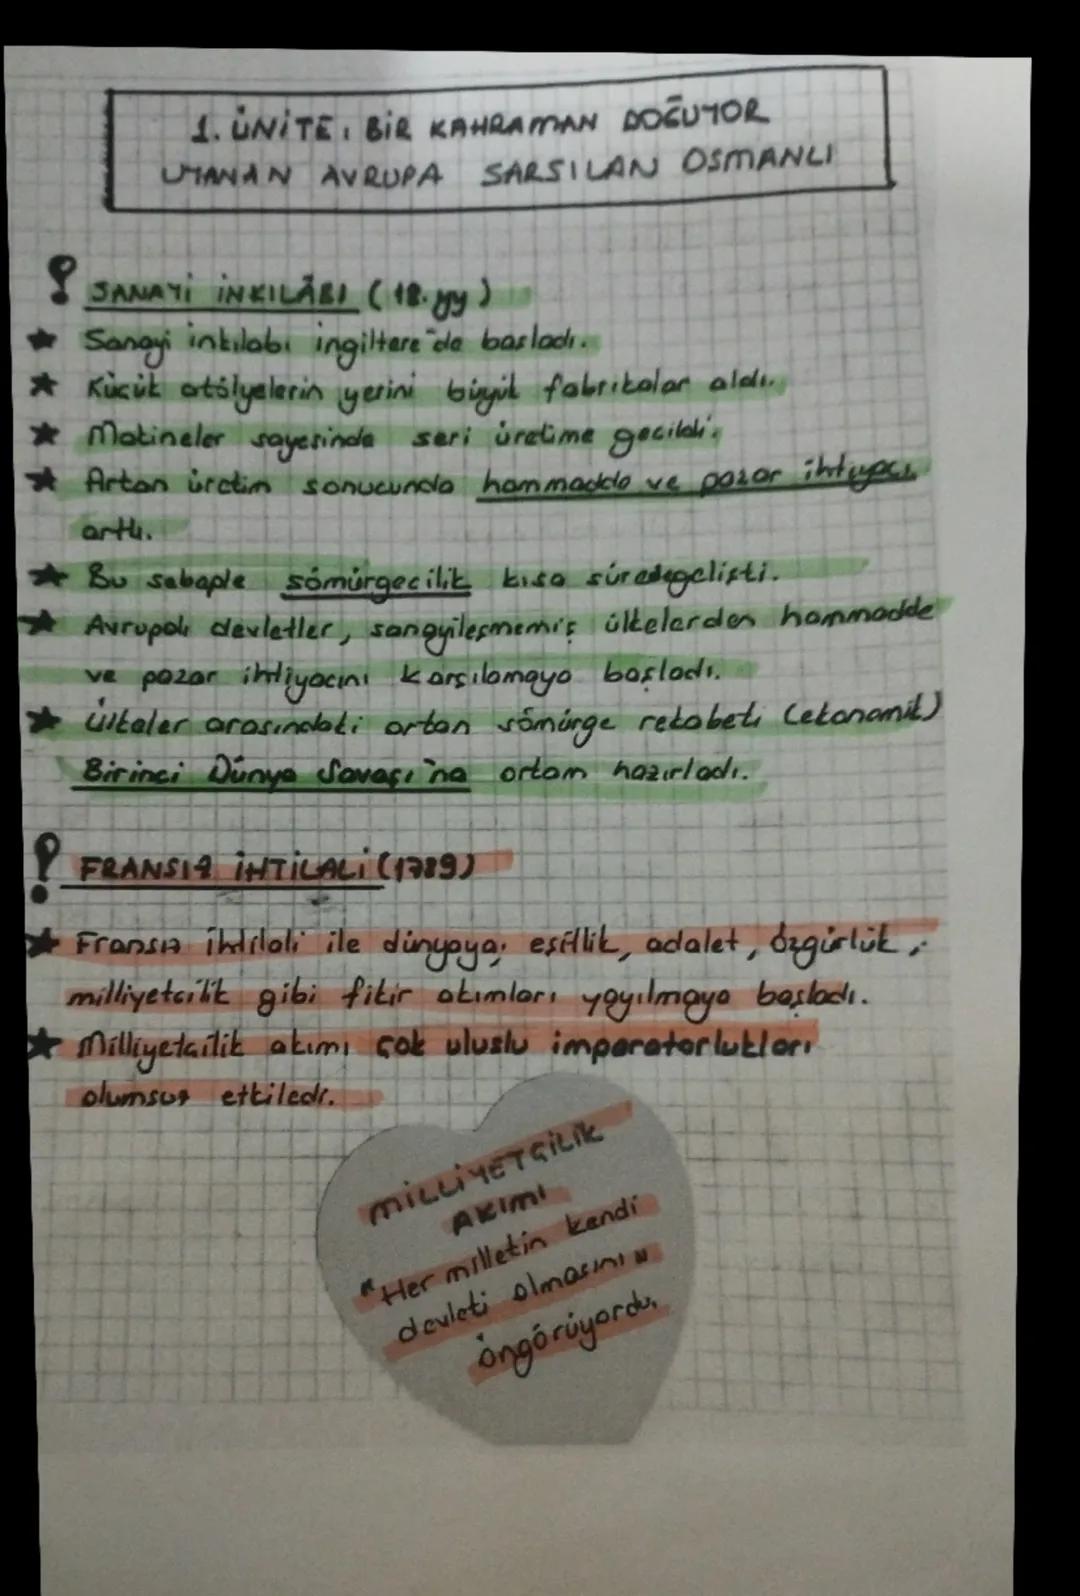 1. ÜNİTE: BİR KAHRAMAN DOĞUYOR
UYANAN AVRUPA SARSILAN OSMANLI
SANAYİ İNKILÂBI (18.yy)
★ Sanayi inkılabı ingiltere'de başladı.
★ Küçük atölyelerin yerini büyük fabrikalar aldı.
★ Makineler sayesinde seri üretime geçildi.
★ Artan üretim sonucunda hammadde ve pazar ihtiyacı
arttı.
★ Bu sebeple sömürgecilik kısa sürede gelişti.
★ Avrupalı devletler, sanayileşmemiş ülkelerden hammadde
ve pazar ihtiyacını karşılamaya başladı.
★ Ülkeler arasındaki artan sömürge rekabeti (ekonomik)
Birinci Dünya Savaşı'na ortam hazırladı.
FRANSIZ İHTİLALİ (1789)
★ Fransız İhtilali ile dünyaya; eşitlik, adalet, özgürlük,
milliyetcilik gibi fikir akımları yayılmaya başladı.
★ Milliyetçilik akımı çok uluslu imparatorlukları
olumsuz etkiledi.
MİLLİYETÇİLİK
AKIMI
"Her milletin kendi
devleti olmasını"
öngörüyordu.